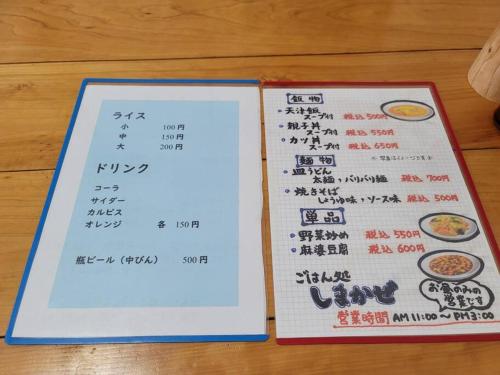 ライス
小 100円
中 150円
大 200円
ドリンク
コーラ
サイダー
カルピス
オレンジ 各 150円
瓶ビール（中びん） 500円
飯物
・天津飯
スープ付 税込 500円
・親子丼
スープ付 税込 550円
・カツ丼
スープ付 税込 650円
麺物
・皿うどん
太麺，バリバリ麺 税込 700円
・焼きそば
しょうゆ味，ソース味 税込 500円
単品
・野菜炒め 税込 550円
・麻婆豆腐 税込 600円
ごはん処
しまかぜ
お昼のみの
営業です
営業時間 AM 11:00〜PM 3:00